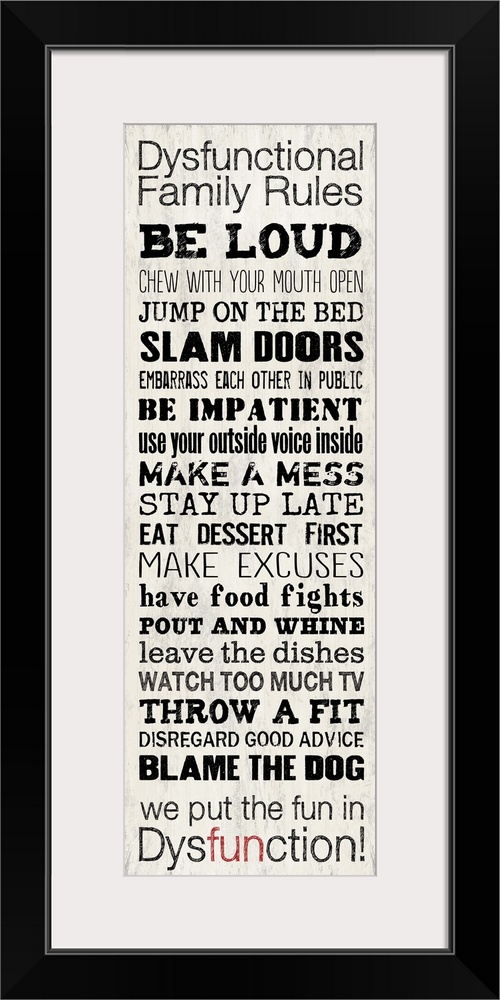 Dysfunctional
Family Rules
BE LOUD
CHEW WITH YOUR MOUTH OPEN
JUMP ON THE BED
SLAM DOORS
EMBARRASS EACH OTHER IN PUBLIC
BE IMPATIENT
use your outside voice inside
MAKE A MESS
STAY UP LATE
EAT DESSERT FIRST
MAKE EXCUSES
have food fights
POUT AND WHINE
leave the dishes
WATCH TOO MUCH TV
THROW A FIT
DISREGARD GOOD ADVICE
BLAME THE DOG
we put the fun in
Dysfunction!